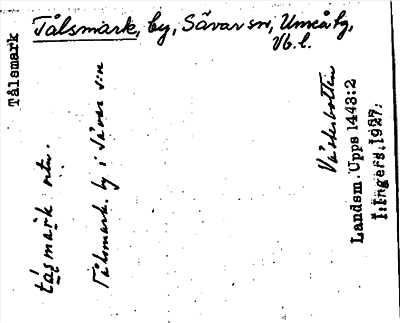 Tålsmark
Tålsmark, by, Sävar sn, Umeå hg,
Vb. l.
tásmark
Tålsmark. by i Sävar s:n
Västerbotten
Landsm. Upps 1443:2
1927.